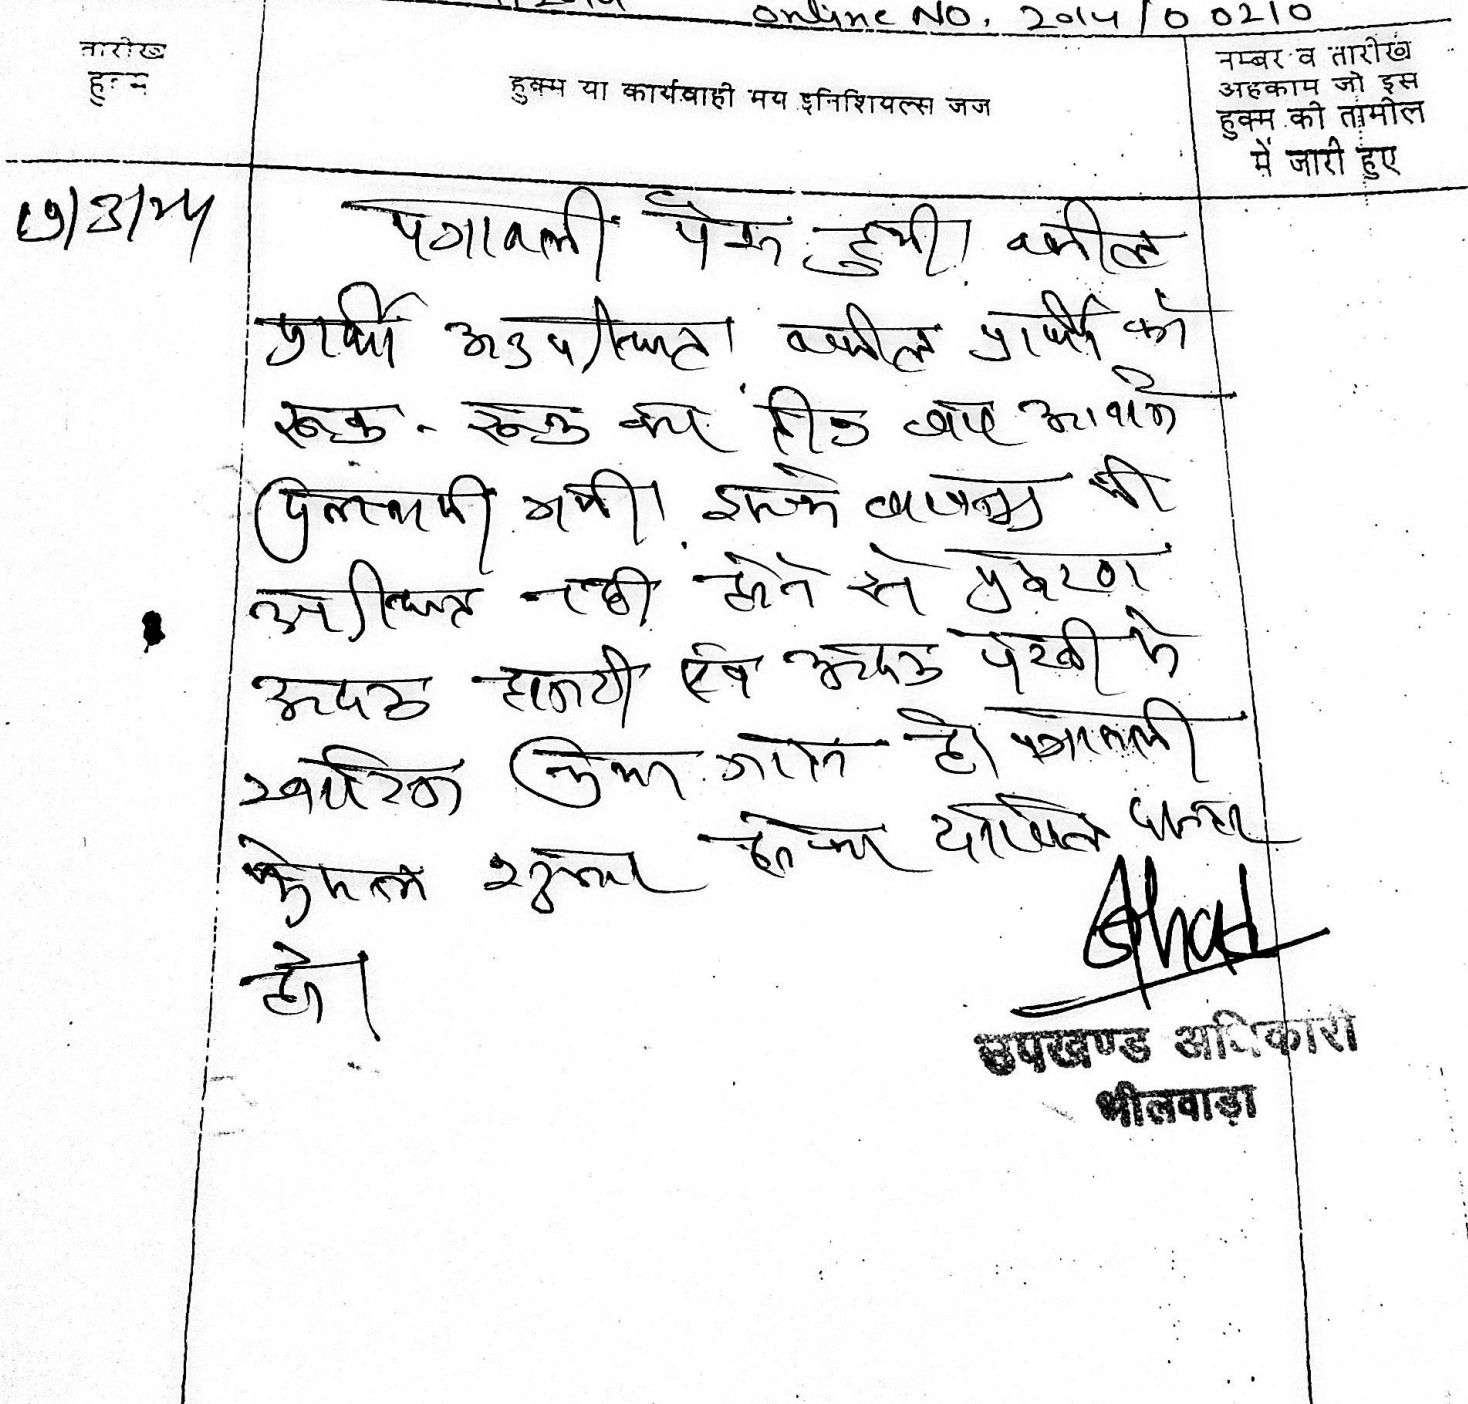 Online NO. 2014/00210
तारीख
हुक्म
हुक्म या कार्यवाही मय इनिशियल्स जज
नम्बर व तारीख
अहकाम जो इस
हुक्म की तामील
में जारी हुए
पत्रावली पेश हुयी। वकील
प्रार्थी अनुपस्थित। वकील प्रार्थी को
रूक-रूक कर तीन बार आवाज
दिलवायी गयी। इसके बावजूद भी
उपस्थित नहीं होने से प्रकरण
अदम हाजरी एवं अदम पैरवी में
खारिज किया जाता है। पत्रावली
फैसल शुमार होकर दाखिल दफ्तर
हो।
उपखण्ड अधिकारी
भीलवाड़ा